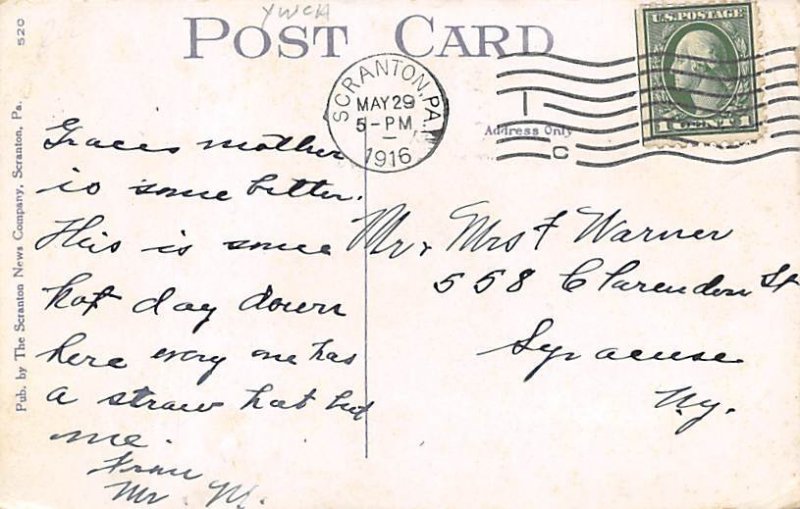 YWCA
POST CARD
520
Pub. by The Scranton News Company, Scranton, Pa.
SCRANTON, PA.
MAY 29
5-PM
1916
1
C
U.S. POSTAGE
1 CENTS 1
Address Only
Graces mother
is some better.
This is some
hot day down
here every one has
a straw hat but
me.
From
Mr. M.
Mr & Mrs F Warner
558 Clarendon St
Syracuse
Ny.